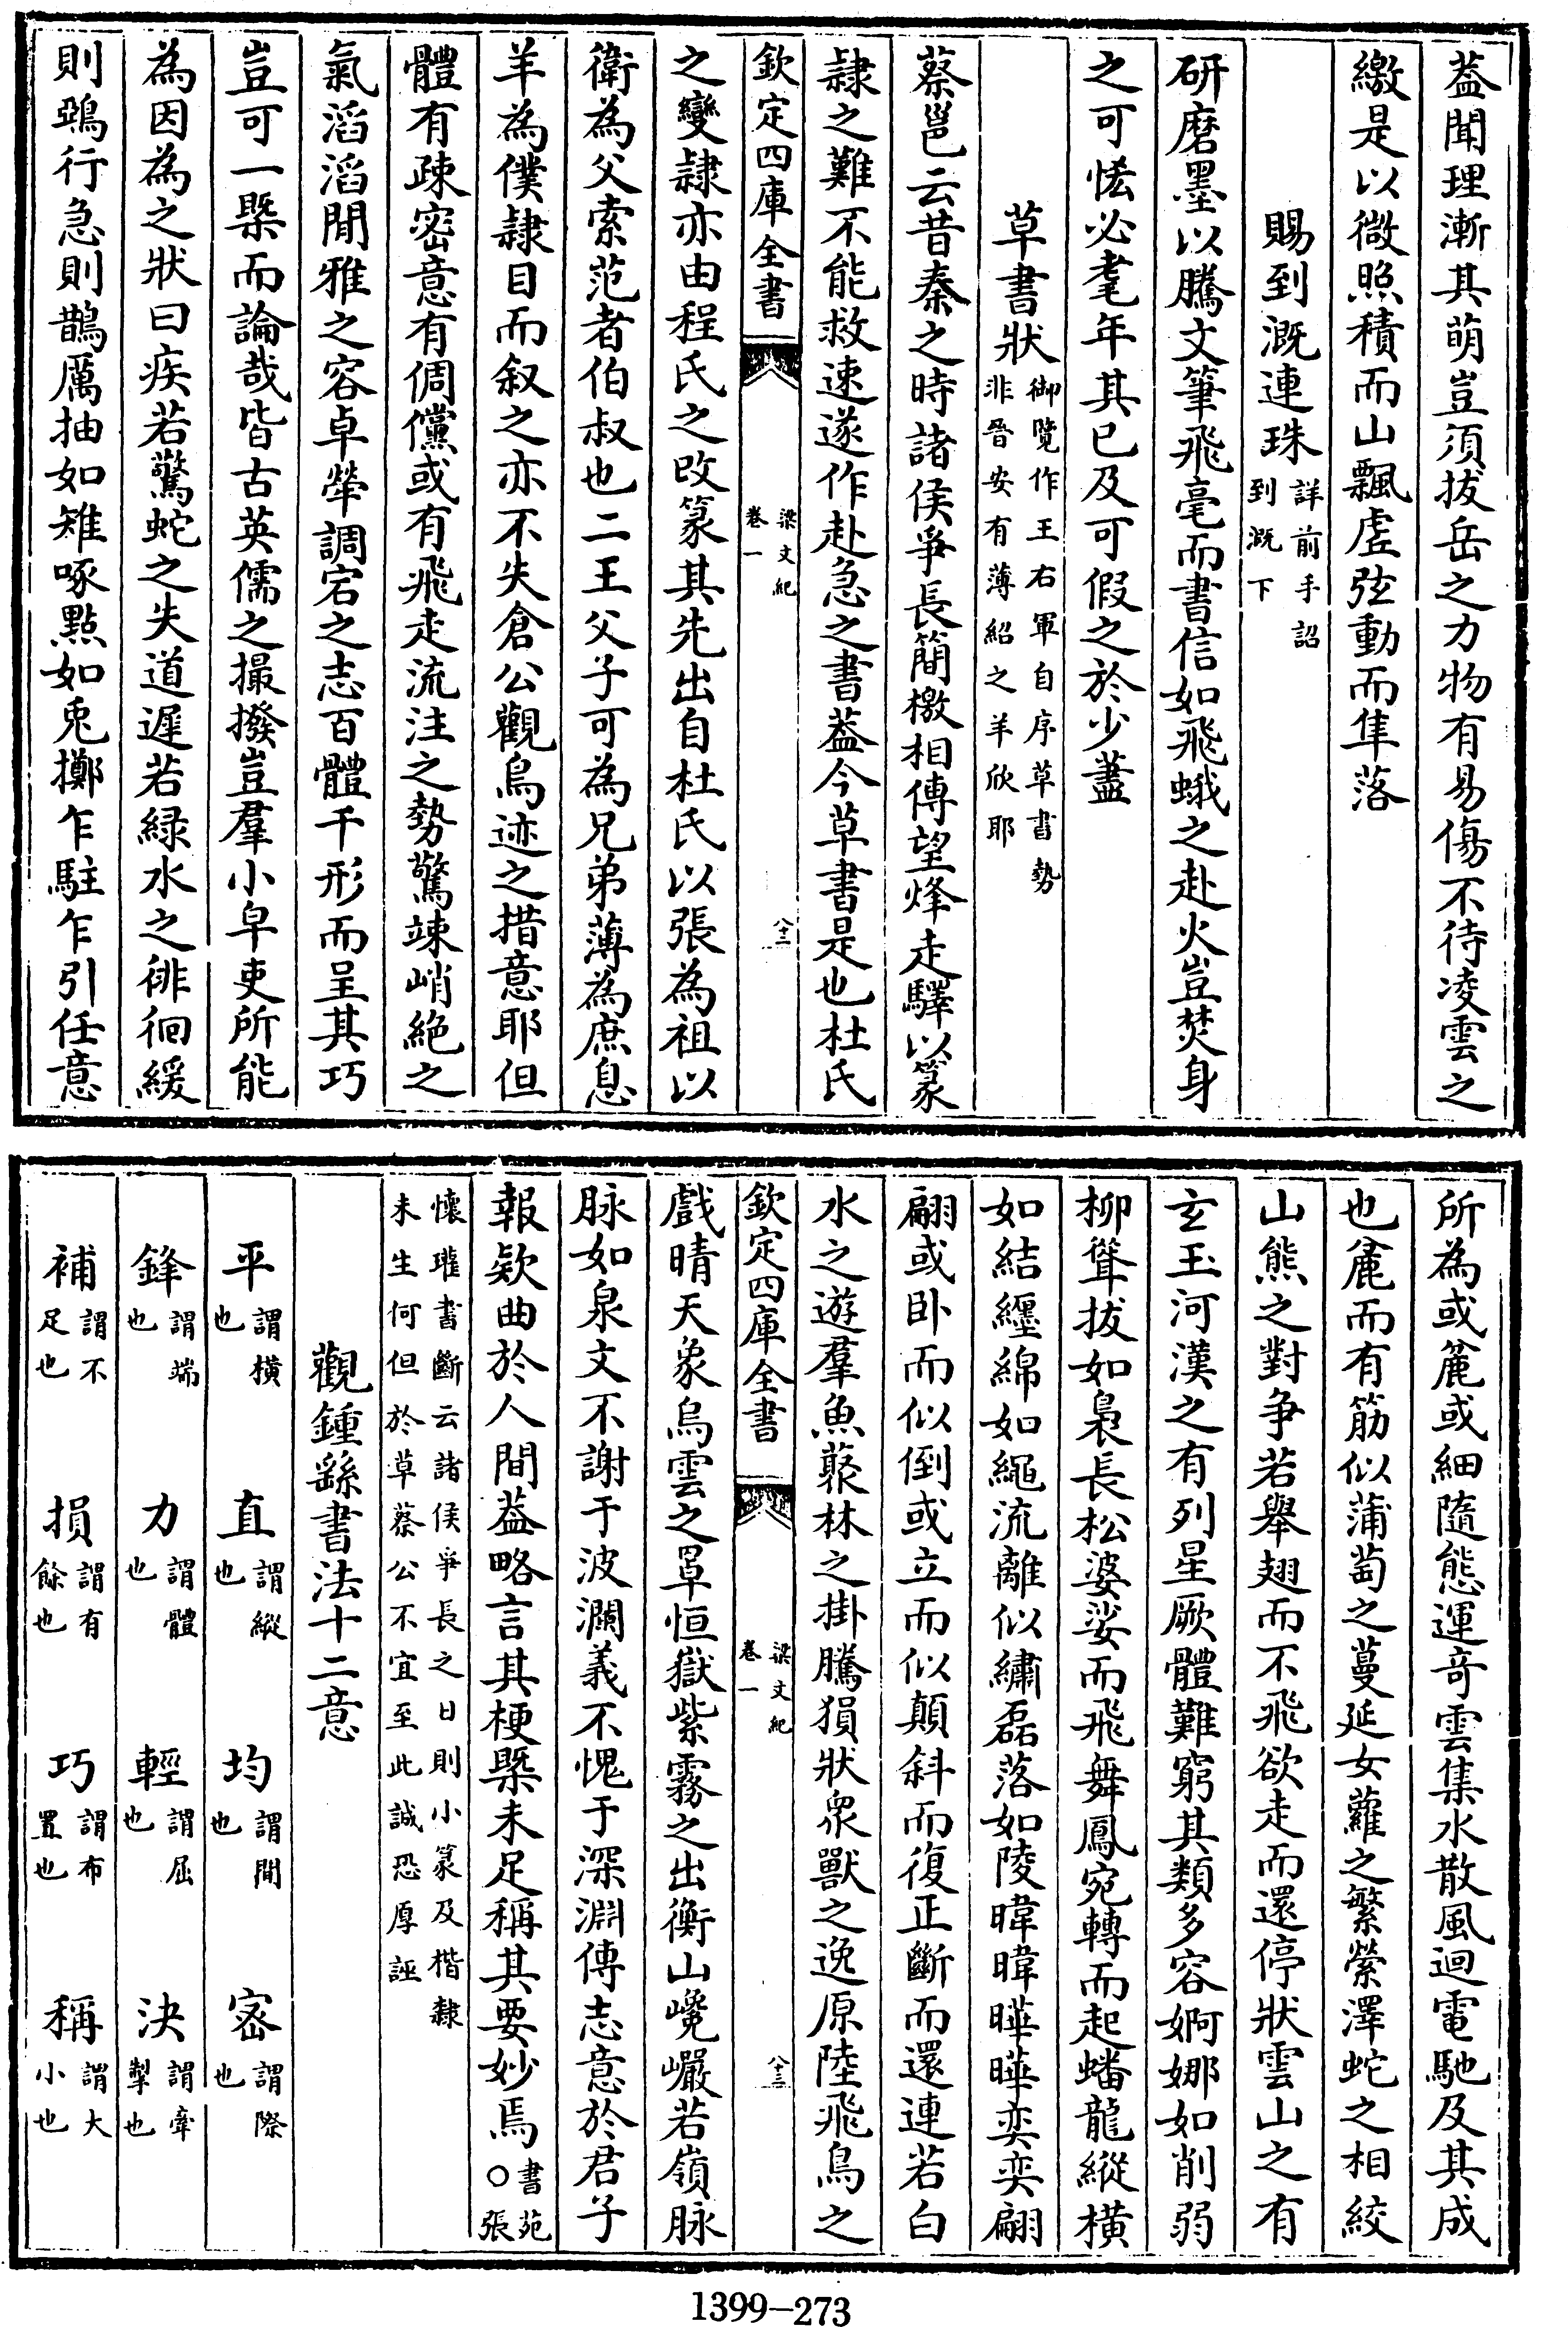 葢聞理漸其萌豈須拔岳之力物有易傷不待凌雲之
繳是以微照積而山飄虛弦動而隼落
賜到溉連珠詳前手詔到溉下
研磨墨以騰文筆飛毫而書信如飛蛾之赴火豈焚身
之可恡必耄年其已及可假之於少藎
草書狀御覽作王右軍自序草書勢非晉安有薄紹之羊欣耶
蔡邕云昔秦之時諸侯爭長簡檄相傳望烽走驛以篆
隷之難不能救速遂作赴急之書葢今草書是也杜氏
欽定四庫全書
梁文紀
卷一
八十二
之變隷亦由程氏之改篆其先出自杜氏以張為祖以
衛為父索范者伯叔也二王父子可為兄弟薄為庶息
羊為僕隷目而叙之亦不失倉公觀鳥迹之措意耶但
體有疎密意有倜儻或有飛走流注之勢驚竦峭絶之
氣滔滔閒雅之容卓犖調宕之志百體千形而呈其巧
豈可一槩而論哉皆古英儒之撮撥豈羣小皁吏所能
為因為之狀曰疾若驚蛇之失道遲若緑水之徘徊緩
則鵶行急則鵲厲抽如雉啄點如兎擲乍駐乍引任意
所為或麄或細隨態運竒雲集水散風迴電馳及其成
也麄而有筋似蒲萄之蔓延女蘿之繁縈澤蛇之相絞
山熊之對争若舉翅而不飛欲走而還停狀雲山之有
玄玉河漢之有列星厥體難窮其類多容婀娜如削弱
柳聳拔如裊長松婆娑而飛舞鳳宛轉而起蟠龍縱横
如結纒綿如繩流離似繡磊落如陵暐暐曄曄奕奕翩
翩或卧而似倒或立而似顛斜而復正斷而還連若白
水之遊羣魚藂林之掛騰猿狀衆獸之逸原陸飛鳥之
欽定四庫全書
梁文紀
卷一
八十三
戲晴天象烏雲之罩恒嶽紫霧之出衡山巉巖若嶺脉
脉如泉文不謝于波瀾義不愧于深淵傳志意於君子
報欵曲於人間葢略言其梗槩未足稱其要妙焉書苑〇張
懷瓘書斷云諸侯爭長之日則小篆及楷隸
未生何但於草蔡公不宜至此誠恐厚誣
觀鍾繇書法十二意
平謂橫也 直謂縱也 均謂間也 宻謂際也
鋒謂端也 力謂體也 輕謂屈也 決謂牽掣也
補謂不足也 損謂有餘也 巧謂布置也 稱謂大小也
1399-273